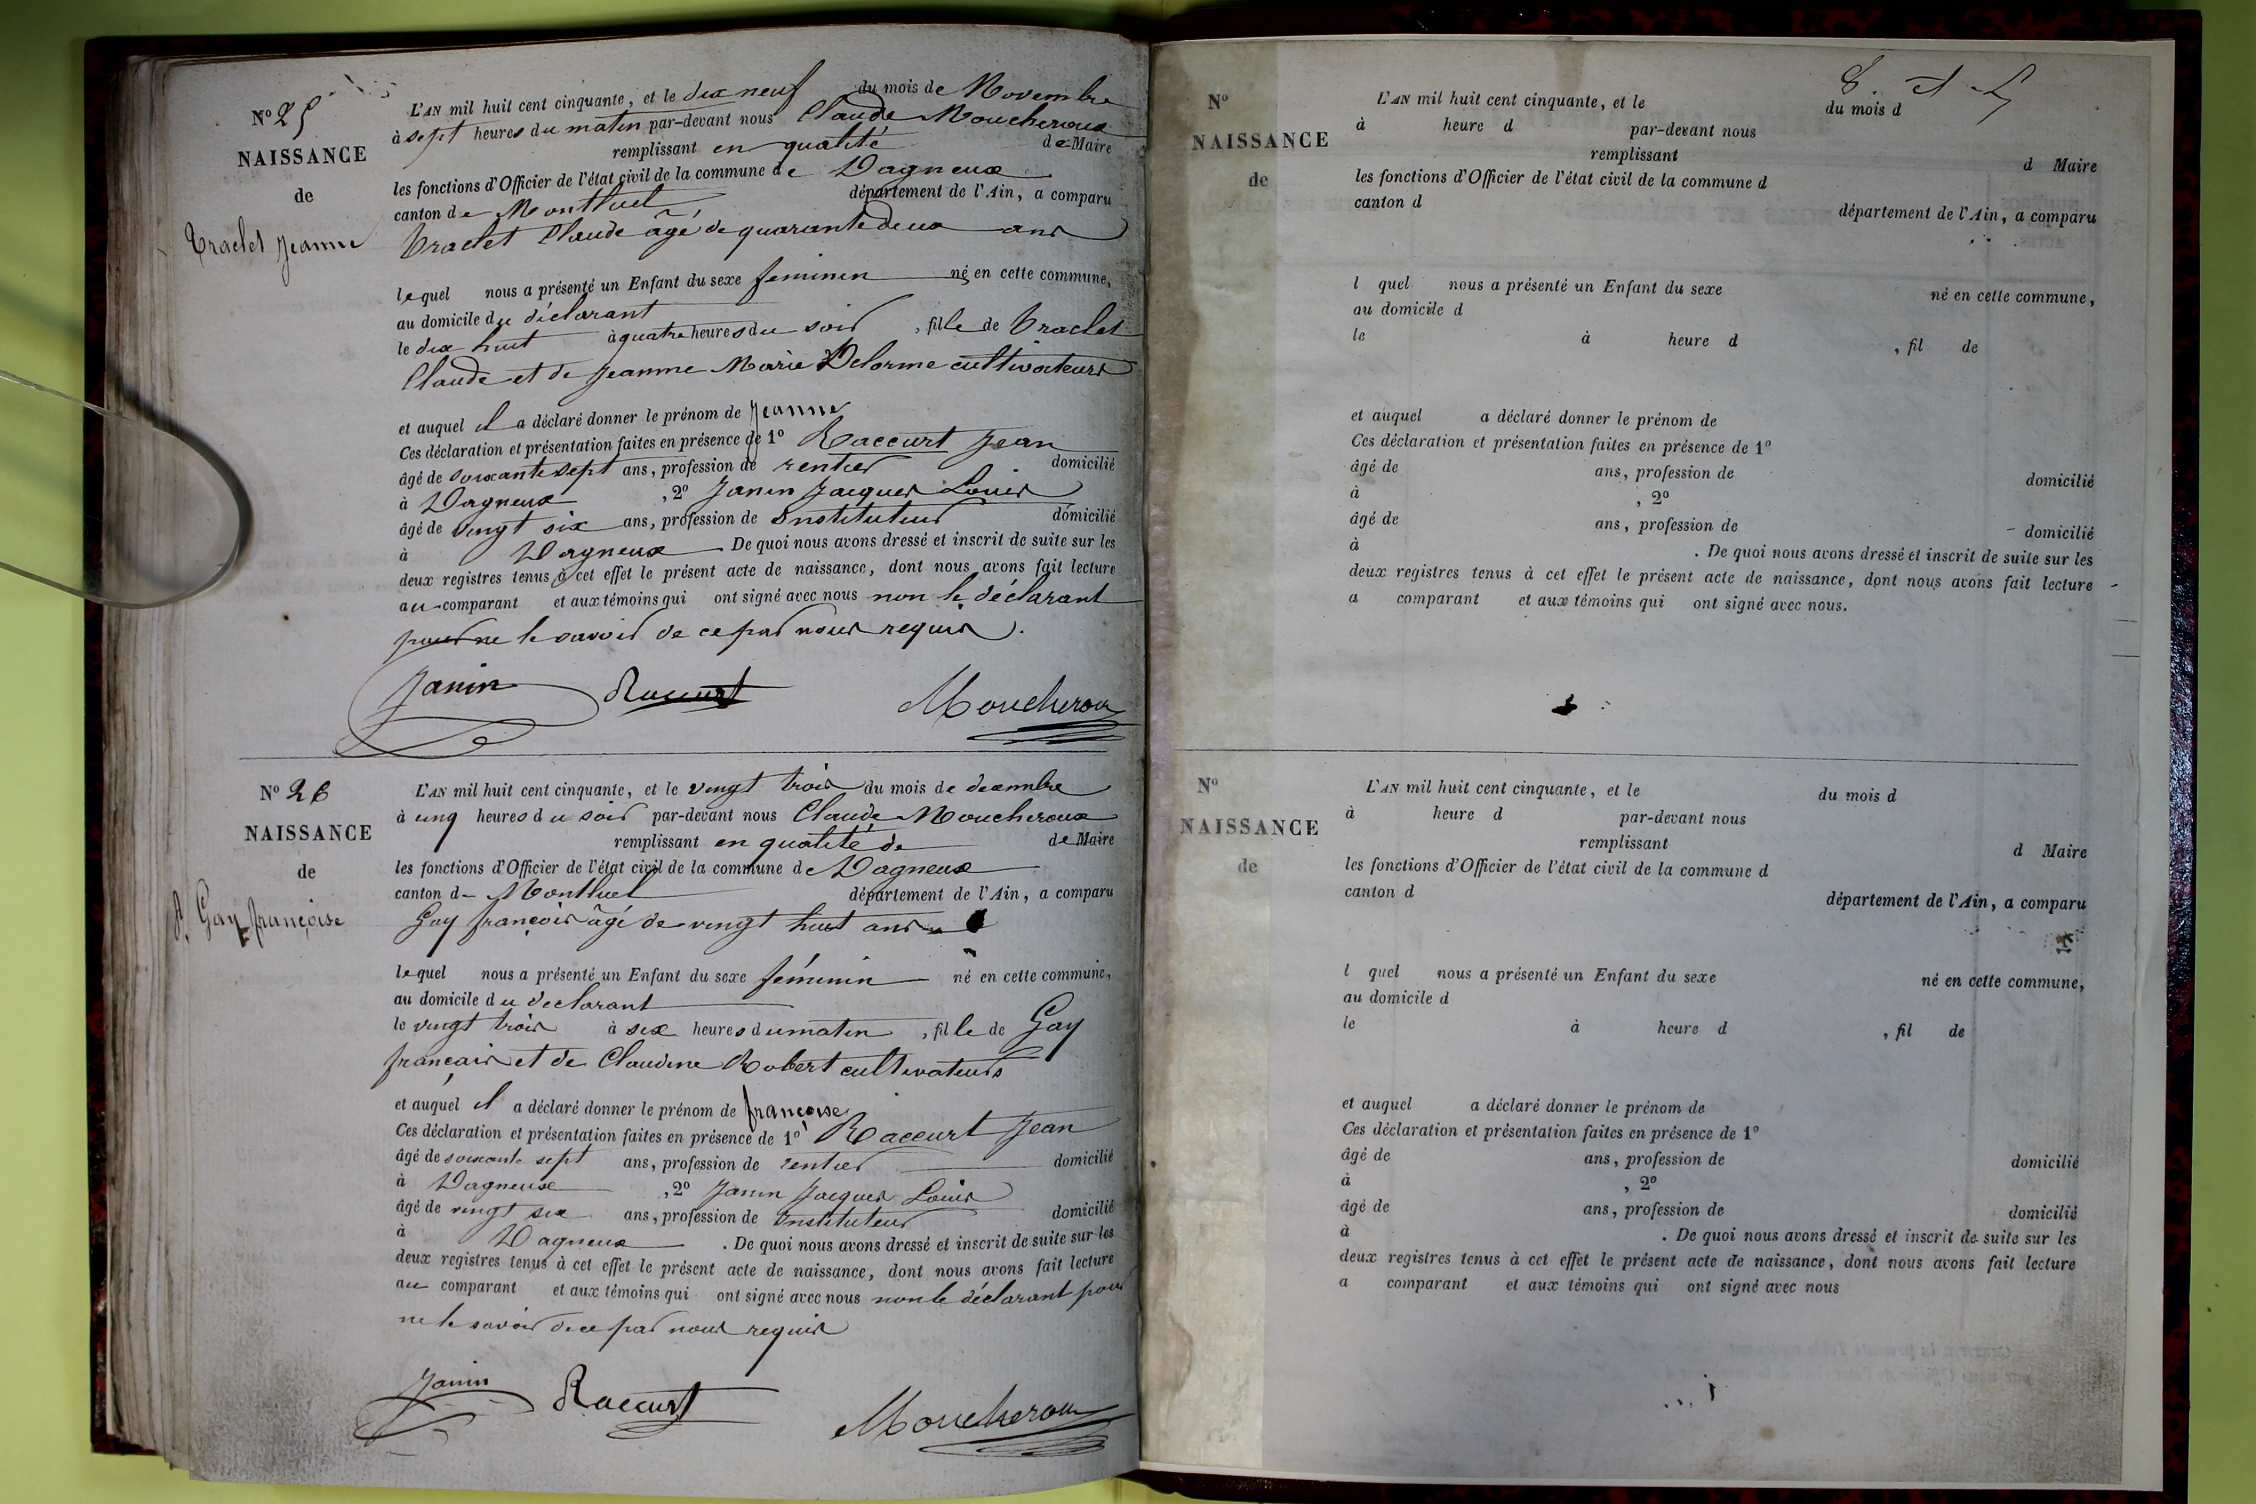 N° 25
NAISSANCE
de
Traclet Jeanne
L'AN mil huit cent cinquante, et le dix neuf du mois de Novembre
à sept heures du matin par-devant nous Claude Moucheroux
remplissant en qualité de Maire
les fonctions d'Officier de l'état civil de la commune de Dagneux
canton de Montluel département de l'Ain, a comparu
Traclet Claude âgé de quarante deux ans
lequel nous a présenté un Enfant du sexe feminin né en cette commune,
au domicile du déclarant
le dix huit à quatre heures du soir, fille de Traclet
Claude et de Jeanne Marie Delorme cultivateurs
et auquel il a déclaré donner le prénom de Jeanne
Ces déclaration et présentation faites en présence de 1° Raccurt Jean
âgé de soixante sept ans, profession de rentier domicilié
à Dagneux, 2° Janin Jacques Louis
âgé de vingt six ans, profession de Instituteur domicilié
à Dagneux De quoi nous avons dressé et inscrit de suite sur les
deux registres tenus à cet effet le présent acte de naissance, dont nous avons fait lecture
au comparant et aux témoins qui ont signé avec nous non le déclarant
pour ne le savoir de ce par nous requis.
Janin Raccurt Moucheroux
N° 26
NAISSANCE
de
Gay françoise
L'AN mil huit cent cinquante, et le vingt trois du mois de decembre
à cinq heures du soir par-devant nous Claude Moucheroux
remplissant en qualité de de Maire
les fonctions d'Officier de l'état civil de la commune de Dagneux
canton de Montluel département de l'Ain, a comparu
Gay françois âgé de vingt huit ans
lequel nous a présenté un Enfant du sexe féminin né en cette commune,
au domicile du declarant
le vingt trois à six heures du matin, fille de Gay
françois et de Claudine Robert cultivateurs
et auquel il a déclaré donner le prénom de françoise
Ces déclaration et présentation faites en présence de 1° Raccurt Jean
âgé de soixante sept ans, profession de rentier domicilié
à Dagneux, 2° Janin Jacques Louis
âgé de vingt six ans, profession de Instituteur domicilié
à Dagneux. De quoi nous avons dressé et inscrit de suite sur les
deux registres tenus à cet effet le présent acte de naissance, dont nous avons fait lecture
au comparant et aux témoins qui ont signé avec nous non le déclarant pour
ne le savoir de ce par nous requis
Janin Raccurt Moucheroux
N°
NAISSANCE
de
L'AN mil huit cent cinquante, et le du mois d
à heure d par-devant nous
remplissant d Maire
les fonctions d'Officier de l'état civil de la commune d
canton d département de l'Ain, a comparu
l quel nous a présenté un Enfant du sexe né en cette commune,
au domicile d
le à heure d, fil de
et auquel a déclaré donner le prénom de
Ces déclaration et présentation faites en présence de 1°
âgé de ans, profession de domicilié
à, 2°
âgé de ans, profession de domicilié
à. De quoi nous avons dressé et inscrit de suite sur les
deux registres tenus à cet effet le présent acte de naissance, dont nous avons fait lecture
a comparant et aux témoins qui ont signé avec nous.
N°
NAISSANCE
de
L'AN mil huit cent cinquante, et le du mois d
à heure d par-devant nous
remplissant d Maire
les fonctions d'Officier de l'état civil de la commune d
canton d département de l'Ain, a comparu
l quel nous a présenté un Enfant du sexe né en cette commune,
au domicile d
le à heure d, fil de
et auquel a déclaré donner le prénom de
Ces déclaration et présentation faites en présence de 1°
âgé de ans, profession de domicilié
à, 2°
âgé de ans, profession de domicilié
à. De quoi nous avons dressé et inscrit de suite sur les
deux registres tenus à cet effet le présent acte de naissance, dont nous avons fait lecture
a comparant et aux témoins qui ont signé avec nous